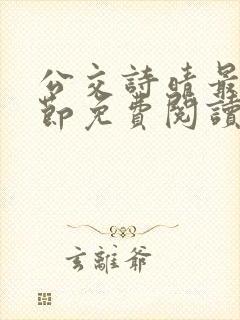 公交詩晴最
節免費閱讀
玄離爺